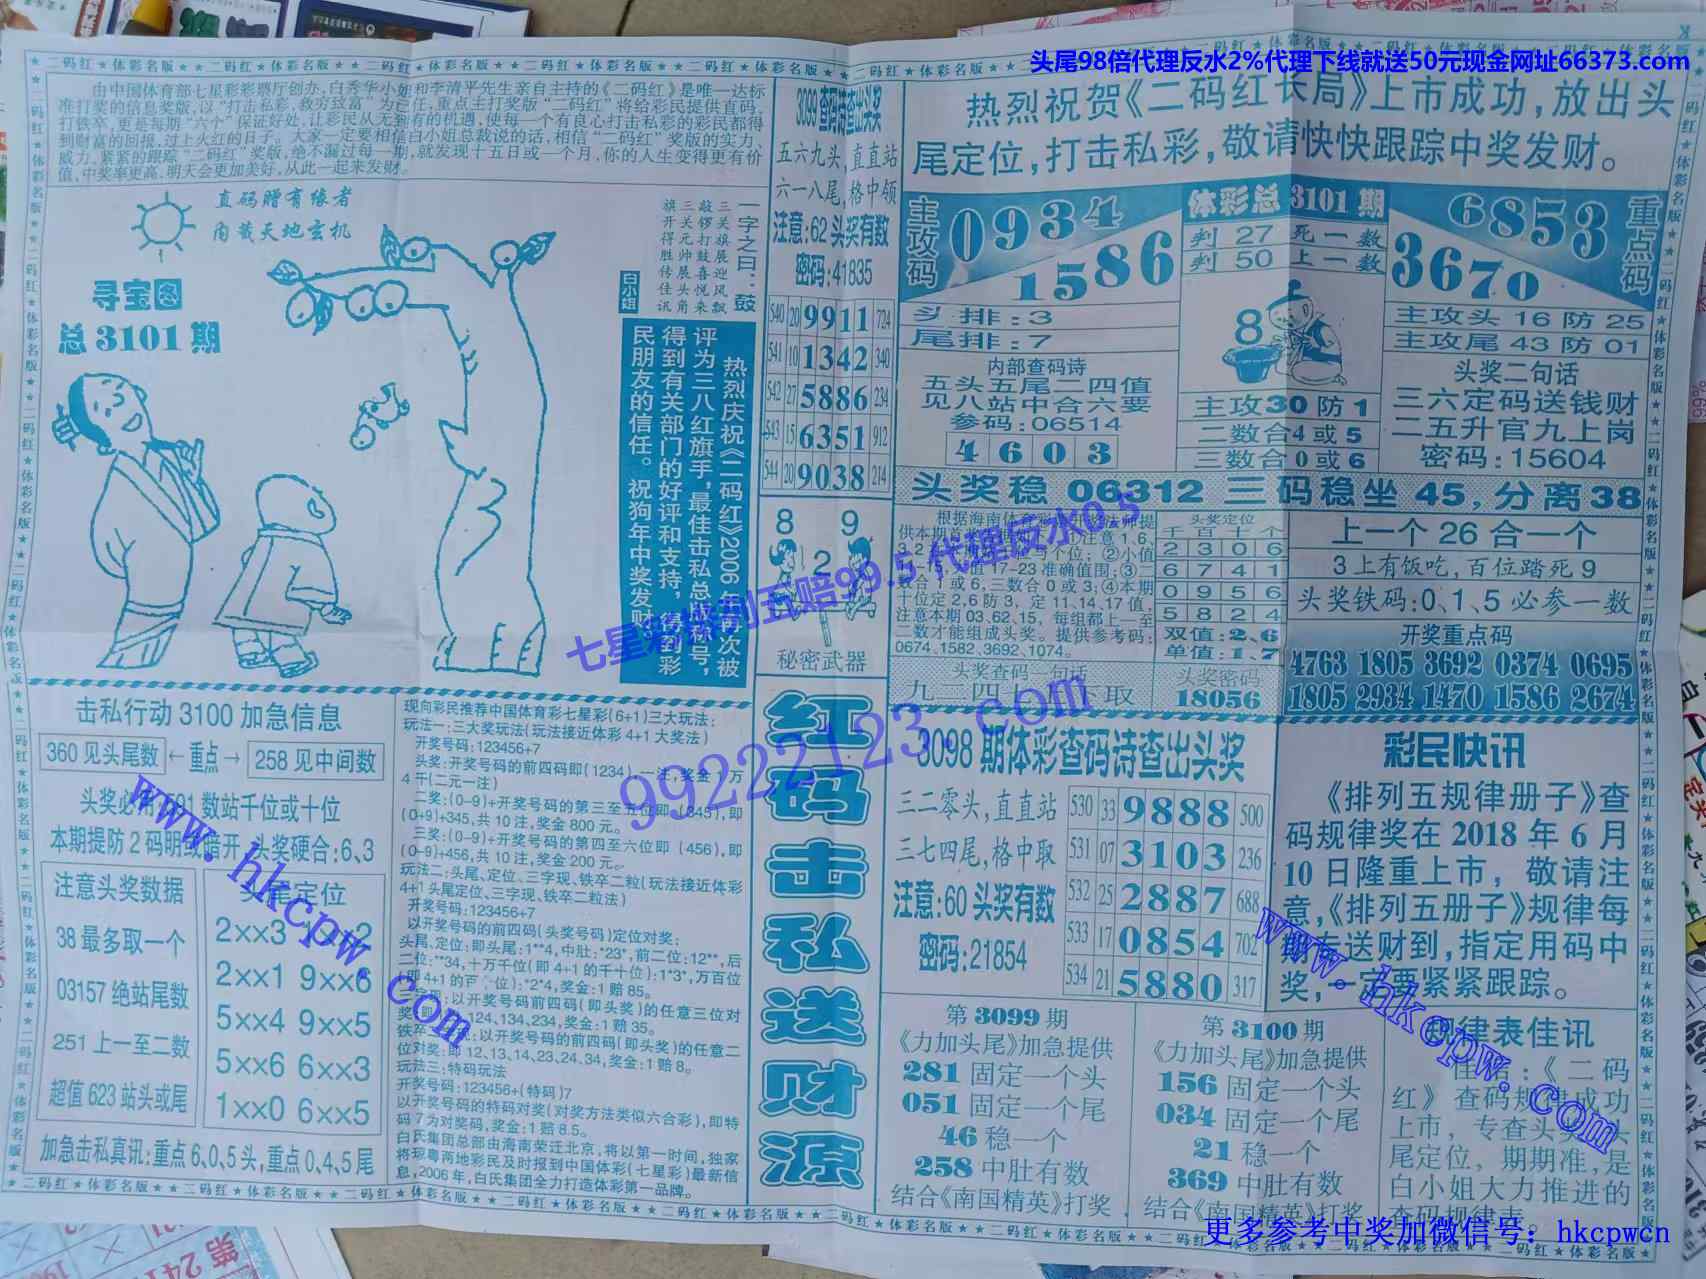 头尾98倍代理反水2%代理下线就送50元现金网址66373.com
由中国体育部七星彩彩票厅创办,白秀华小姐和李清平先生亲自主持的《二码红》是唯一达标
准打奖的信息奖版,以“打击私彩,救穷致富”为己任,重点主打奖版“二码红”将给彩民提供直码,
打铁卒,更是每期“六个”保证好处,让彩民从无到有的机遇,使每一个有良心打击私彩的彩民都得
到财富的回报,过上火红的日子。大家一定要相信白小姐总裁说的话,相信“二码红”奖版的实力、
威力,紧紧的跟踪“二码红”奖版,绝不漏过每一期,就发现十五日或一个月,你的人生变得更有价
值,中奖率更高,明天会更加美好,从此一起来发财。
直码赠有缘者
内载天地玄机
寻宝图
总3101期
一字之曰:鼓
三关旗展迎风飘
敲锣打鼓喜悦来
三关元帅展头角
旗开得胜传佳讯
白小姐
热烈庆祝《二码红》2006年再次被
评为三八红旗手,最佳击私总裁称号,
得到有关部门的好评和支持,得到彩
民朋友的信任。祝狗年中奖发财
3099查码诗查出头奖
五六九头,直直站
六一八尾,格中领
注意:62头奖有数
密码:41835
540 20 9911 724
541 10 1342 340
542 27 5886 234
543 15 6351 912
544 20 9038 214
8 9
2
秘密武器
红码击私送财源
热烈祝贺《二码红长局》上市成功,放出头
尾定位,打击私彩,敬请快快跟踪中奖发财。
主攻码
0934
1586
体彩总3101期
判27死一数
判50上一数
6853
3670
重点码
头排:3
尾排:7
内部查码诗
五头五尾二四值
见八站中合六要
参码:06514
4 6 0 3
8
主攻30防1
二数合4或5
三数合0或6
主攻头16防25
主攻尾43防01
头奖二句话
三六定码送钱财
二五升官九上岗
密码:15604
头奖稳 06312 三码稳坐 45,分离38
定2,6防3,定11,14,17值,
注意本期03,62,15,每组都上一至
二数才能组成头奖。提供参考码:
0674,1582,3692,1074。
头奖定位
千百十个
2 3 0 6
6 7 4 1
0 9 5 6
5 8 2 4
双值:2、6
单值:1、7
头奖查码一句话
头奖密码
18056
上一个26合一个
3上有饭吃,百位踏死9
头奖铁码:0、1、5必参一数
开奖重点码
4763 1805 3692 0374 0695
1805 2934 1470 1586 2674
击私行动3100加急信息
360见头尾数 ←重点→ 258见中间数
本期提防2码明或暗开,头奖硬合:6、3
注意头奖数据
38最多取一个
03157绝站尾数
251上一至二数
超值623站头或尾
头尾定位
2××3
2××1 9××6
5××4 9××5
5××6 6××3
1××0 6××5
加急击私真讯:重点6、0、5头,重点0、4、5尾
现向彩民推荐中国体育彩七星彩(6+1)三大玩法:
玩法一:三大奖玩法(玩法接近体彩4+1大奖法)
开奖号码:123456+7
头奖:开奖号码的前四码即(1234)一注,奖金1万
4千(二元一注)
二奖:(0–9)+开奖号码的第三至五位即:(345),即
(0+9)+345,共10注,奖金800元。
三奖:(0–9)+开奖号码的第四至六位即(456),即
(0–9)+456,共10注,奖金200元。
玩法二:头尾、定位、三字现、铁卒二粒(玩法接近体彩
4+1头尾定位、三字现、铁卒二粒法)
开奖号码:123456+7
以开奖号码的前四码(头奖号码)定位对奖:
头尾、定位:即头尾:1**4,中肚:*23*,前二位:12**,后
二位:**34,十万千位(即4+1的千十位):1*3*,万百位
:*2*4,奖金:1赔85。
以开奖号码前四码(即头奖)的任意三位对
124,134,234,奖金:1赔35。
以开奖号码的前四码(即头奖)的任意二
位对奖:即12,13,14,23,24,34,奖金:1赔8。
玩法三:特码玩法
开奖号码:123456+(特码)7
以开奖号码的特码对奖(对奖方法类似六合彩),即特
码7为对奖码,奖金:1赔8.5。
白氏集团总部由海南荣迁北京,将以第一时间,独家
将琼粤两地彩民及时报到中国体彩(七星彩)最新信
息,2006年,白氏集团全力打造体彩第一品牌。
3098期体彩查码诗查出头奖
三二零头,直直站
三七四尾,格中取
注意:60头奖有数
密码:21854
530 33 9888 500
531 07 3103 236
532 25 2887 688
533 17 0854 702
534 21 5880 317
彩民快讯
《排列五规律册子》查
码规律奖在2018年6月
10日隆重上市,敬请注
意,《排列五册子》规律每
期有送财到,指定用码中
奖,一定要紧紧跟踪。
第3099期
《力加头尾》加急提供
281固定一个头
051固定一个尾
46稳一个
258中肚有数
结合《南国精英》打奖
第3100期
《力加头尾》加急提供
156固定一个头
034固定一个尾
21稳一个
369中肚有数
结合《南国精英》打奖
规律表佳讯
佳者:《二码
红》查码规律成功
上市,专查头奖、头
尾定位,期期准,是
白小姐大力推进的
查码规律表。
七星彩排列五赔99.5 代理反水0.5
99222123.com
www.hkcpw.com
www.hkcpw.com
更多参考中奖加微信号: hkcpwcn